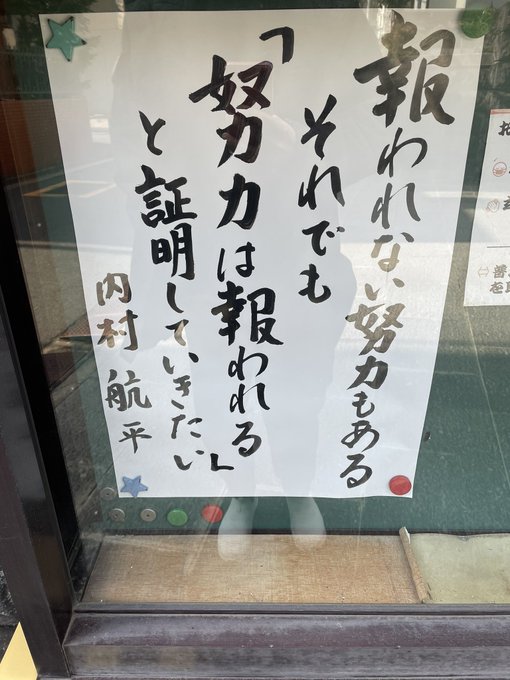 報われない努力もある
それでも
「努力は報われる」
と証明していきたい
内村 航平